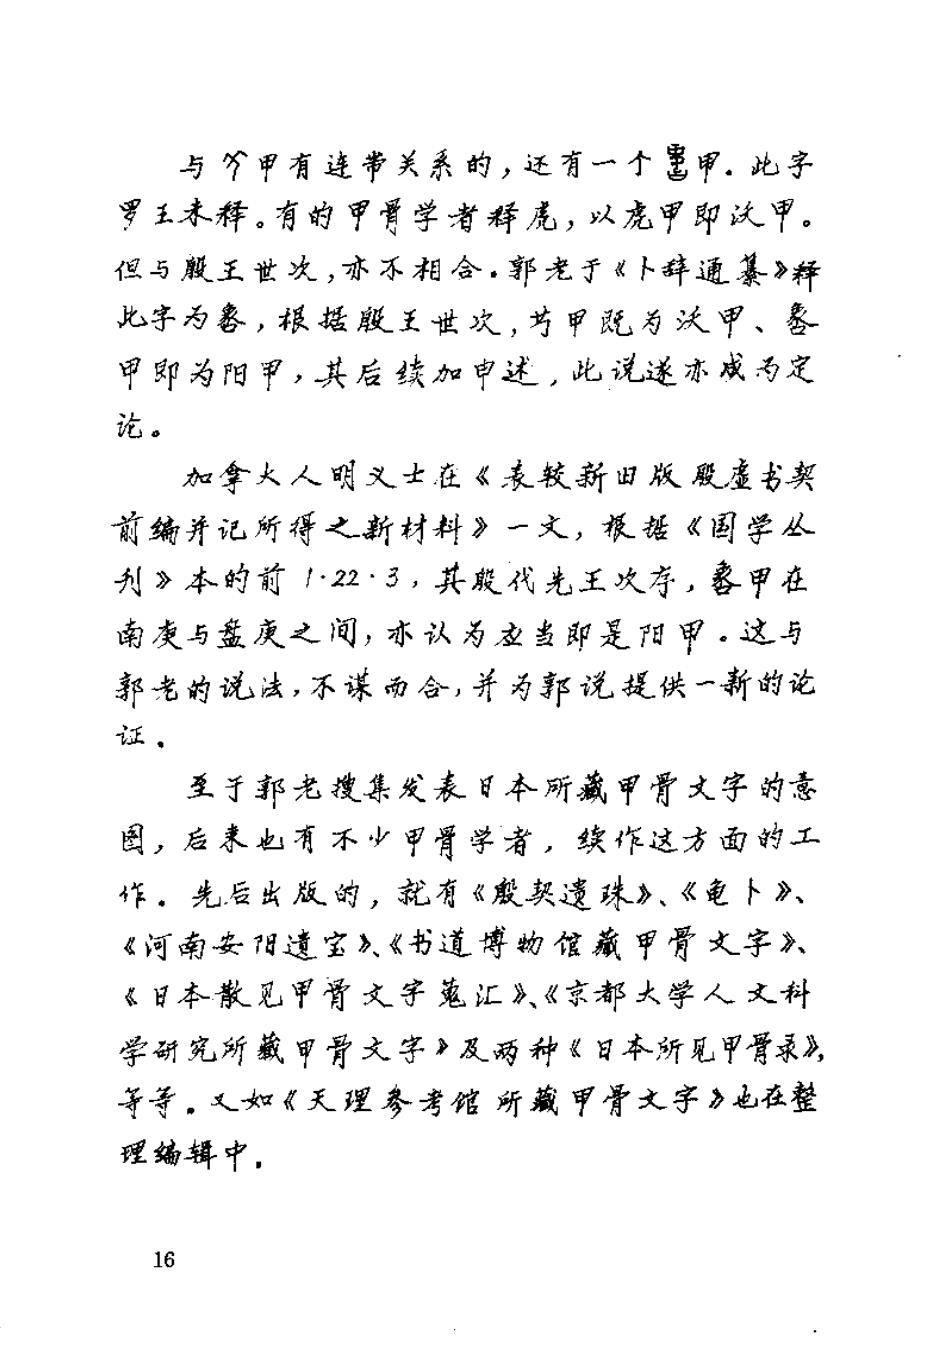 与甲有连带关系的，还有一个甲．此字
罗王未释。有的甲骨学者释虎，以虎甲即沃甲。
但与殷王世次，亦不相合．郭老于《卜辞通纂》释
此字为㲋，根据殷王世次，芍甲既为沃甲、㲋
甲即为阳甲，其后续加申述，此说遂亦成为定
论。
加拿大人明义士在《表较新旧版殷虚书契
前编并记所得之新材料》一文，根据《国学丛
刊》本的前1·22·3，其殷代先王次序，㲋甲在
南庚与盘庚之间，亦认为应当即是阳甲。这与
郭老的说法，不谋而合，并为郭说提供一新的论
证．
至于郭老搜集发表日本所藏甲骨文字的意
图，后来也有不少甲骨学者，续作这方面的工
作．先后出版的，就有《殷契遗珠》、《龟卜》、
《河南安阳遗宝》、《书道博物馆藏甲骨文字》、
《日本散见甲骨文字蒐汇》、《京都大学人文科
学研究所藏甲骨文字》及两种《日本所见甲骨录》，
等等．又如《天理参考馆所藏甲骨文字》也在整
理编辑中．
16